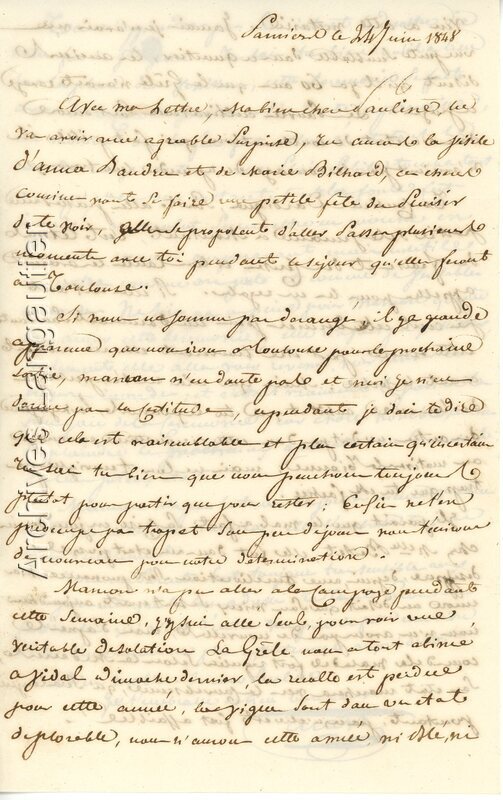 Pamiers le 24 Juin 1848
Avec ma Lettre, ma bien chere Pauline, tu
va avoir une agreable Surprise, tu auras la visite
d'anna Dandru et de Marie Bilhard, ces cheres
cousine vont se faire une petite fête du plaisir
de te voir, elles se proposent d'aller Passer plusieurs
moments avec toi pendant le sejour qu'elles feront
a Toulouse.
Si nous ne somme pas derangé, il y a grande
apparence que nous irons a Toulouse pour la prochaine
sortie, maman n'en doute pas et moi je n'en
donne pas la Certitude, cependant je dois te dire
que cela est vraisemblable et plus certain qu'incertain
Tu sais tu bien que nous penchons toujours
plutot pour partir que pour rester; Enfin ne t'en
preocupe pas trop at Sous peu de jours nous t'ecrirons
de nouveau pour notre determination.
Maman n'a pu aller a la Campagne pendant
cette Semaine, j'y suis allé Seule, pour voir une
veritable desolation La Grêle nous a tout abimé
a Vidal Dimanche dernier, la recolte est perdue
pour cette année, les vignes Sont dans un etat
deplorable, nous n'aurons cette année, ni Blé, ni
Archives Largautier